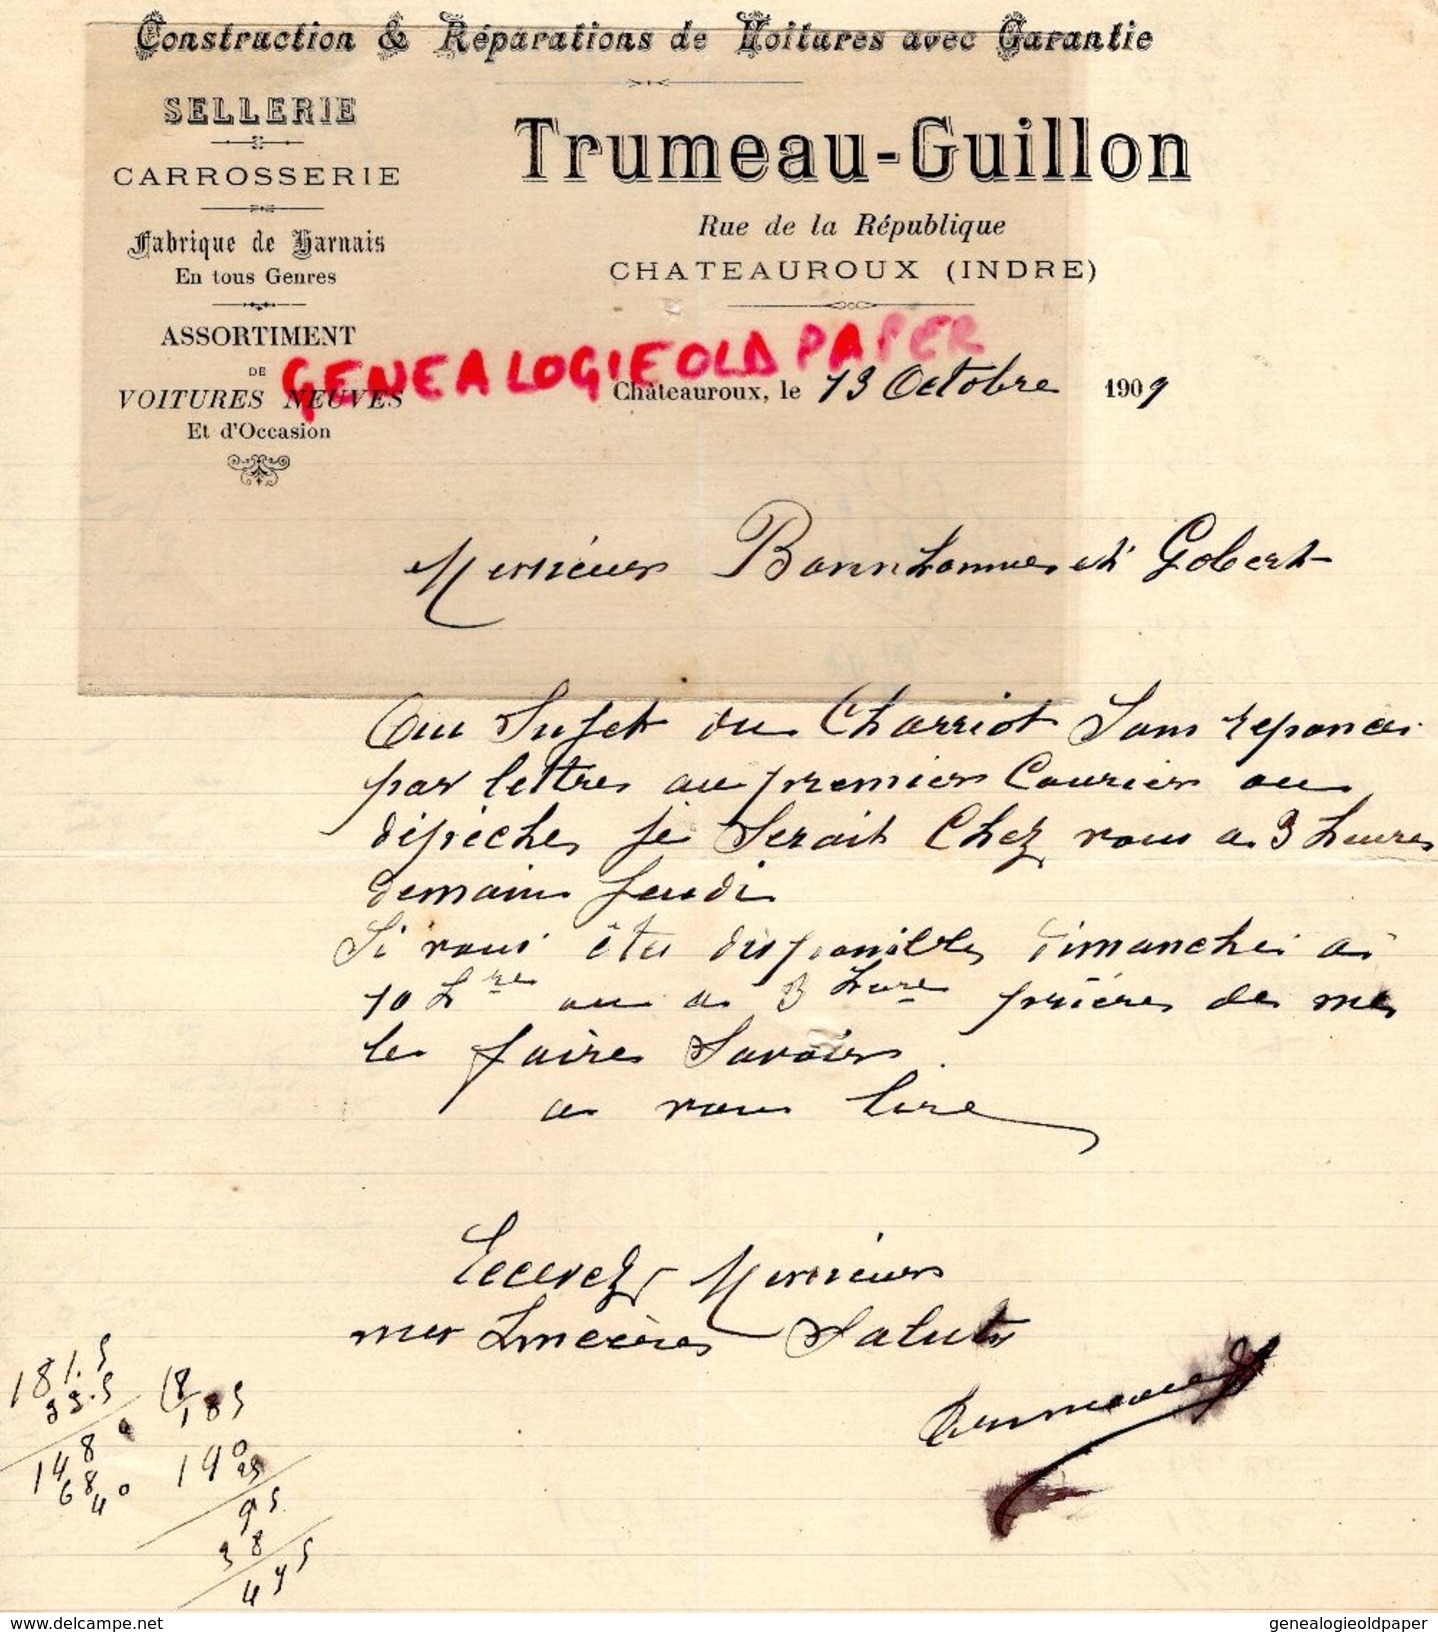 Construction & Réparations de Voitures avec Garantie
SELLERIE
CARROSSERIE
Fabrique de Harnais
En tous Genres
ASSORTIMENT
DE
VOITURES NEUVES
Et d'Occasion
Trumeau-Guillon
Rue de la République
CHATEAUROUX (INDRE)
GENEALOGIEOLDPAPER
Châteauroux, le 13 Octobre 1909
Messieurs Bonnhomme et Gobert
Au Sujet du Charriot Sans reponce
par lettre au premier Courier ou
dépèche je Serait Chez vous a 3 heures
demain Jeudi
Si vous êtes disponible dimanche a
10 hre ou a 3 hure prière de me
le faire Savoir.
a vous lire
Recevez Messieurs
mes Sincères Saluts
Trumeau
181.5
33.5
148 0
68
40
18
185
190
95
95
38
475
delcampe.net
genealogieoldpaper